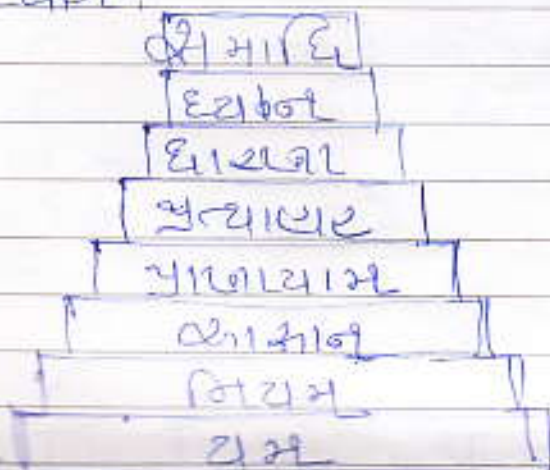 સમાધિ
ધ્યાન
ધારણા
પ્રત્યાહાર
પ્રાણાયામ
આસાન
નિયમ
યમ